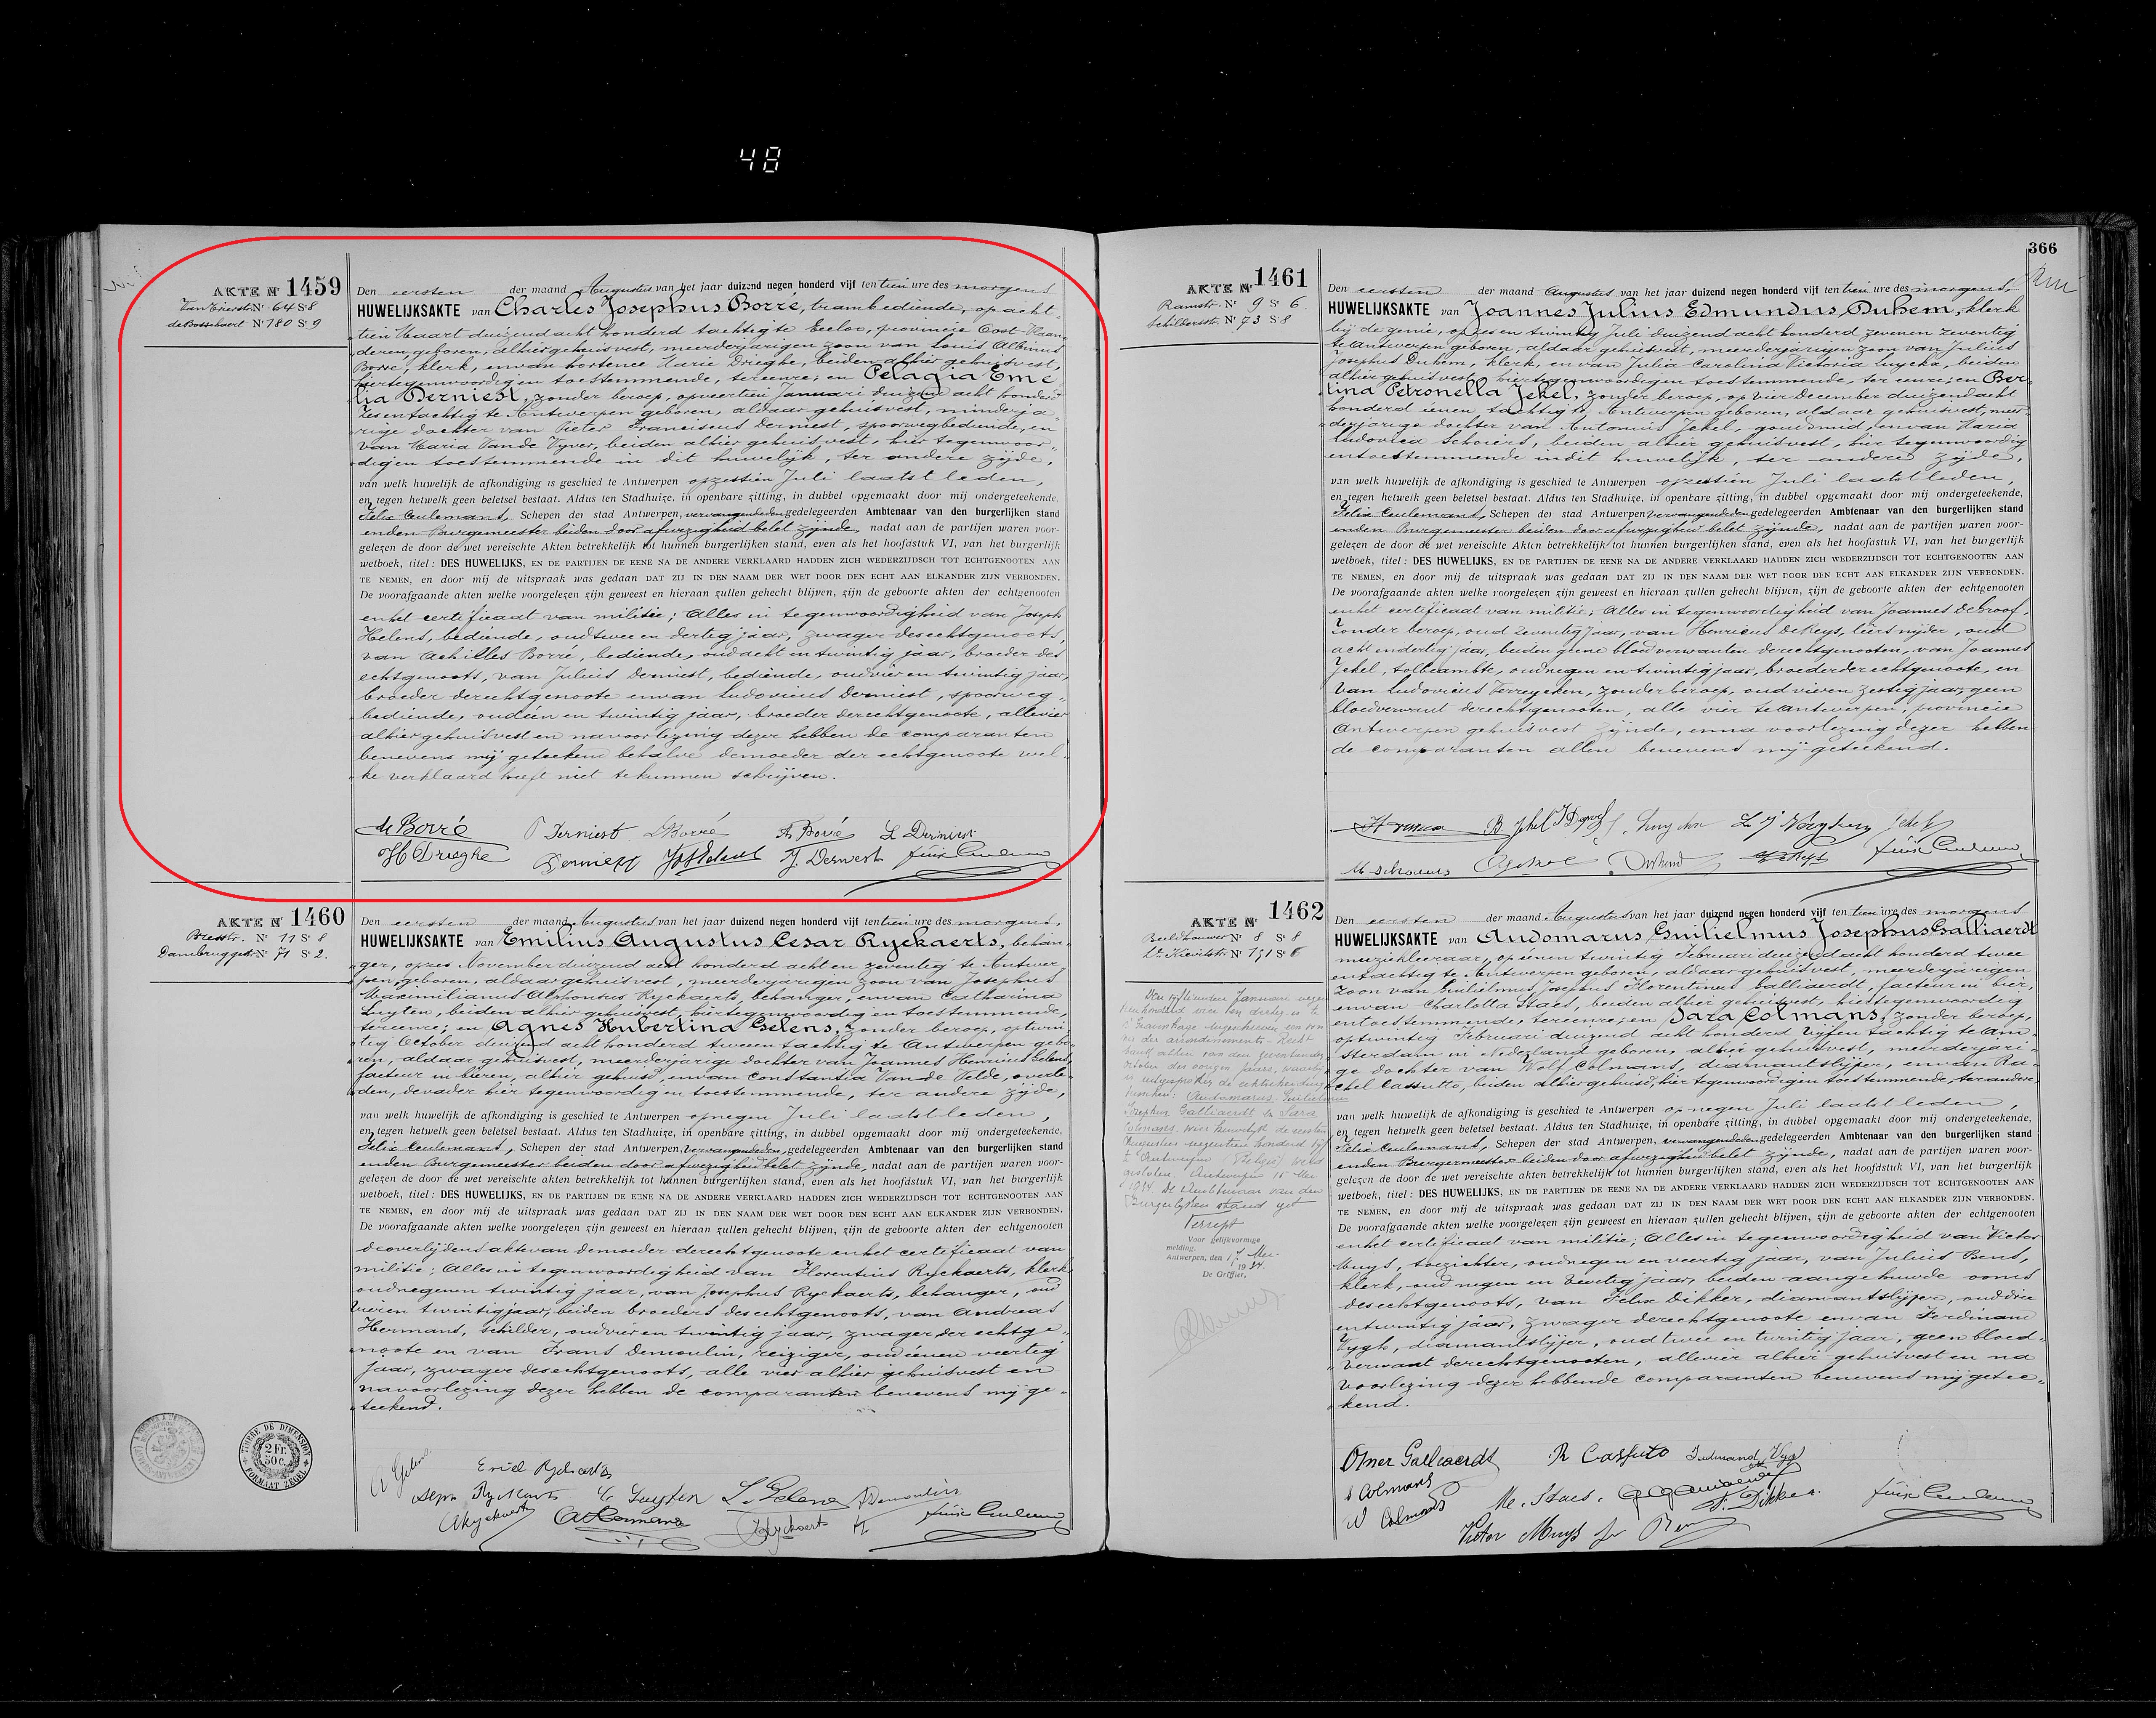 48
AKTE Nr 1459
Van Trierstr Nr 64 Se 8
de Bosschaert Nr 180 Se 9
Den eersten der maand Augustus van het jaar duizend negen honderd vijf ten tien ure des morgens
HUWELIJKSAKTE van Charles Josephus Borré, trambediende, op acht-
tien Maart duizend acht honderd tachtig te Eecloo, provincie Oost-Vlaan-
deren, geboren, alhier gehuisvest, meerderjarigen zoon van Louis Albinus
Borré, klerk, en van Hortence Marie Drieghe, beiden alhier gehuisvest,
hier tegenwoordig en toestemmende, ter eenre; en Pelagia Eme-
lia Derniest, zonder beroep, op veertien Januari duizend acht honderd
zes en tachtig te Antwerpen geboren, aldaar gehuisvest, minderja-
rige dochter van Pieter Franciscus Derniest, spoorwegbediende, en
van Maria Vande Vyver, beiden alhier gehuisvest, hier tegenwoor-
dig en toestemmende in dit huwelijk, ter andere zijde,
van welk huwelijk de afkondiging is geschied te Antwerpen op zestien Juli laatst leden,
en tegen hetwelk geen beletsel bestaat. Aldus ten Stadhuize, in openbare zitting, in dubbel opgemaakt door mij ondergeteekende,
Felix Ceulemans, Schepen der stad Antwerpen, vervangende den gedelegeerden Ambtenaar van den burgerlijken stand
en den Burgemeester beiden door afwezigheid belet zijnde, nadat aan de partijen waren voor-
gelezen de door de wet vereischte Akten betrekkelijk tot hunnen burgerlijken stand, even als het hoofdstuk VI, van het burgerlijk
wetboek, titel : DES HUWELIJKS, EN DE PARTIJEN DE EENE NA DE ANDERE VERKLAARD HADDEN ZICH WEDERZIJDSCH TOT ECHTGENOOTEN AAN
TE NEMEN, en door mij de uitspraak was gedaan DAT ZIJ IN DEN NAAM DER WET DOOR DEN ECHT AAN ELKANDER ZIJN VERBONDEN.
De voorafgaande akten welke voorgelezen zijn geweest en hieraan zullen gehecht blijven, zijn de geboorte akten der echtgenooten
en het certificaat van militie; Alles in tegenwoordigheid van Joseph
Helens, bediende, oud twee en dertig jaar, zwager des echtgenoots,
van Achilles Borré, bediende, oud acht en twintig jaar, broeder des
echtgenoots, van Julius Derniest, bediende, oud vier en twintig jaar,
broeder der echtgenoote en van Ludovicus Derniest, spoorweg-
bediende, oud één en twintig jaar, broeder der echtgenoote, alle vier
alhier gehuisvest en na voorlezing dezer hebben de comparanten
benevens mij geteekend behalve de moeder der echtgenoote wel-
ke verklaard heeft niet te kunnen schrijven.
ch Borré P Derniest L Borré A Borré L Derniest
H Drieghe Derniest Jos Helens J. Derniest Felix Ceulemans
AKTE Nr 1460
Bresstr. Nr 11 Se 8
Dambruggestr Nr 71 Se 2.
Den eersten der maand Augustus van het jaar duizend negen honderd vijf ten tien ure des morgens,
HUWELIJKSAKTE van Emilius Augustus Cesar Ryckaerts, behan-
ger, op zes November duizend acht honderd acht en zeventig te Antwer-
pen, geboren, aldaar gehuisvest, meerderjarigen zoon van Josephus
Maximilianus Alphonsus Ryckaerts, behanger, en van Catharina
Luyten, beiden alhier gehuisvest, hier tegenwoordig en toestemmende,
ter eenre; en Agnes Hubertina Gelens, zonder beroep, op twin-
tig October duizend acht honderd twee en tachtig te Antwerpen gebo-
ren, aldaar gehuisvest, meerderjarige dochter van Joannes Henricus Gelens,
facteur in bieren, alhier gehuisd, en van Constantia Van de Velde, overle-
den, de vader hier tegenwoordig en toestemmende, ter andere zijde,
van welk huwelijk de afkondiging is geschied te Antwerpen op negen Juli laatst leden,
en tegen hetwelk geen beletsel bestaat. Aldus ten Stadhuize, in openbare zitting, in dubbel opgemaakt door mij ondergeteekende,
Felix Ceulemans, Schepen der stad Antwerpen, vervangende den gedelegeerden Ambtenaar van den burgerlijken stand
en den Burgemeester beiden door afwezigheid belet zijnde, nadat aan de partijen waren voor-
gelezen de door de wet vereischte Akten betrekkelijk tot hunnen burgerlijken stand, even als het hoofdstuk VI, van het burgerlijk
wetboek, titel : DES HUWELIJKS, EN DE PARTIJEN DE EENE NA DE ANDERE VERKLAARD HADDEN ZICH WEDERZIJDSCH TOT ECHTGENOOTEN AAN
TE NEMEN, en door mij de uitspraak was gedaan DAT ZIJ IN DEN NAAM DER WET DOOR DEN ECHT AAN ELKANDER ZIJN VERBONDEN.
De voorafgaande akten welke voorgelezen zijn geweest en hieraan zullen gehecht blijven, zijn de geboorte akten der echtgenooten
de overlijdens akte van de moeder der echtgenoote en het certificaat van
militie; Alles in tegenwoordigheid van Florentius Ryckaerts, klerk
oud negen en twintig jaar, van Josephus Ryckaerts, behanger, oud
vier en twintig jaar, beiden broeders des echtgenoots, van Andreas
Hermans, schilder, oud vier en twintig jaar, zwager der echtge-
noote en van Frans Demoulin, reiziger, oud één en veertig
jaar, zwager des echtgenoots, alle vier alhier gehuisvest en
na voorlezing dezer hebben de comparanten benevens mij ge-
teekend.
TIMBRE DE DIMENSION
2 Fr. 50 c.
FORMAAT ZEGEL
A Gelens Emiel Ryckaerts
Ryckaerts C Luyten L. Gelens F Demoulin
Ryckaerts A Hermans Ryckaerts Felix Ceulemans
366
AKTE Nr 1461
Ramstr. Nr 9 Se 6
Schildersstr. Nr 73 Se 8
Den eersten der maand Augustus van het jaar duizend negen honderd vijf ten tien ure des morgens,
HUWELIJKSAKTE van Joannes Julius Edmundus Duhem, klerk
bij de genie, op zes en twintig Juli duizend acht honderd zeven en zeventig
te Antwerpen geboren, aldaar gehuisvest, meerderjarigen zoon van Julius
Josephus Duhem, klerk, en van Julia Carolina Victoria Luyckx, beiden
alhier gehuisvest, hier tegenwoordig en toestemmende, ter eenre; en Ber-
tina Petronella Jekel, zonder beroep, op vier December duizend acht
honderd één en tachtig te Antwerpen geboren, aldaar gehuisvest, meer-
derjarige dochter van Antonius Jekel, goudsmid, en van Maria
Ludovica Schoiers, beiden alhier gehuisvest, hier tegenwoordig
en toestemmende in dit huwelijk, ter andere zijde,
van welk huwelijk de afkondiging is geschied te Antwerpen op zestien Juli laatst leden,
en tegen hetwelk geen beletsel bestaat. Aldus ten Stadhuize, in openbare zitting, in dubbel opgemaakt door mij ondergeteekende,
Felix Ceulemans, Schepen der stad Antwerpen, vervangende den gedelegeerden Ambtenaar van den burgerlijken stand
en den Burgemeester beiden door afwezigheid belet zijnde, nadat aan de partijen waren voor-
gelezen de door de wet vereischte Akten betrekkelijk tot hunnen burgerlijken stand, even als het hoofdstuk VI, van het burgerlijk
wetboek, titel : DES HUWELIJKS, EN DE PARTIJEN DE EENE NA DE ANDERE VERKLAARD HADDEN ZICH WEDERZIJDSCH TOT ECHTGENOOTEN AAN
TE NEMEN, en door mij de uitspraak was gedaan DAT ZIJ IN DEN NAAM DER WET DOOR DEN ECHT AAN ELKANDER ZIJN VERBONDEN.
De voorafgaande akten welke voorgelezen zijn geweest en hieraan zullen gehecht blijven, zijn de geboorte akten der echtgenooten
en het certificaat van militie; Alles in tegenwoordigheid van Joannes DeGroof,
zonder beroep, oud zeventig jaar, van Henricus DeKeys, leersnijder, oud
acht en dertig jaar, beiden geene bloedverwanten der echtgenooten, van Joannes
Jekel, tolbeambte, oud negen en twintig jaar, broeder der echtgenoote, en
van Ludovicus Verreycken, zonder beroep, oud vier en zestig jaar, geen
bloedverwant der echtgenooten, alle vier te Antwerpen, provincie
Antwerpen gehuisvest zijnde, en na voorlezing dezer hebben
de comparanten allen benevens mij geteekend.
B. Jekel Jekel
Duhem Felix Ceulemans
AKTE Nr 1462
Beeldhouwer Nr 8 Se 8
Le Kievitstr. Nr 151 Se 6
Den eersten der maand Augustus van het jaar duizend negen honderd vijf ten tien ure des morgens
HUWELIJKSAKTE van Audomarus Guilielmus Josephus Galliaerdt
muziekleeraar, op één en twintig Februari duizend acht honderd twee
en tachtig te Antwerpen geboren, aldaar gehuisvest, meerderjarigen
zoon van Guilielmus Josephus Florentinus Galliaerdt, facteur in bier,
en van Charlotta Staes, beiden alhier gehuisvest, hier tegenwoordig
en toestemmende, ter eenre; en Sara Colmans, zonder beroep,
op twintig Februari duizend acht honderd vijf en tachtig te Am-
sterdam in Nederland geboren, alhier gehuisvest, meerderjari-
ge dochter van Wolf Colmans, diamantslijper, en van Ra-
chel Cassutto, beiden alhier gehuisd, hier tegenwoordig en toestemmende, ter andere,
van welk huwelijk de afkondiging is geschied te Antwerpen op negen Juli laatst leden,
en tegen hetwelk geen beletsel bestaat. Aldus ten Stadhuize, in openbare zitting, in dubbel opgemaakt door mij ondergeteekende,
Felix Ceulemans, Schepen der stad Antwerpen, vervangende den gedelegeerden Ambtenaar van den burgerlijken stand
en den Burgemeester beiden door afwezigheid belet zijnde, nadat aan de partijen waren voor-
gelezen de door de wet vereischte Akten betrekkelijk tot hunnen burgerlijken stand, even als het hoofdstuk VI, van het burgerlijk
wetboek, titel : DES HUWELIJKS, EN DE PARTIJEN DE EENE NA DE ANDERE VERKLAARD HADDEN ZICH WEDERZIJDSCH TOT ECHTGENOOTEN AAN
TE NEMEN, en door mij de uitspraak was gedaan DAT ZIJ IN DEN NAAM DER WET DOOR DEN ECHT AAN ELKANDER ZIJN VERBONDEN.
De voorafgaande akten welke voorgelezen zijn geweest en hieraan zullen gehecht blijven, zijn de geboorte akten der echtgenooten
en het certificaat van militie; Alles in tegenwoordigheid van Victor
Muys, toezichter, oud negen en veertig jaar, van Julius Bens,
klerk, oud negen en veertig jaar, beiden aangehuwde ooms
des echtgenoots, van Felix Dikker, diamantslijper, oud drie
en twintig jaar, zwager der echtgenoote en van Ferdinand
Vygh, diamantslijper, oud twee en twintig jaar, geen bloed-
verwant der echtgenooten, alle vier alhier gehuisvest en na
voorlezing dezer hebben de comparanten benevens mij getee-
kend.
Den vijftienden Januari negen
tien honderd vier en dertig is te
s'Gravenhage
der arrondissements-Recht
bank
october des vorigen jaars, waarbij
is uitgesproken de echtscheiding
tusschen: Audomarus Guilielmus
Josephus Galliaerdt en Sara
Colmans, wier huwelijk de eersten
Augustus negentien honderd vijf
te Antwerpen (België) werd
gesloten. Antwerpen 15 Mei
1934. De Ambtenaar van den
Burgerlijken stand get
Voor gelijkvormige
melding.
Antwerpen, den 17 Mei
1934.
De Griffier,
Omer Galliaerdt R Cassuto Ferdinand Vygh
S Colmans M. Staes. F. Dikker.
W Colmans Victor Muys J Bens Felix Ceulemans